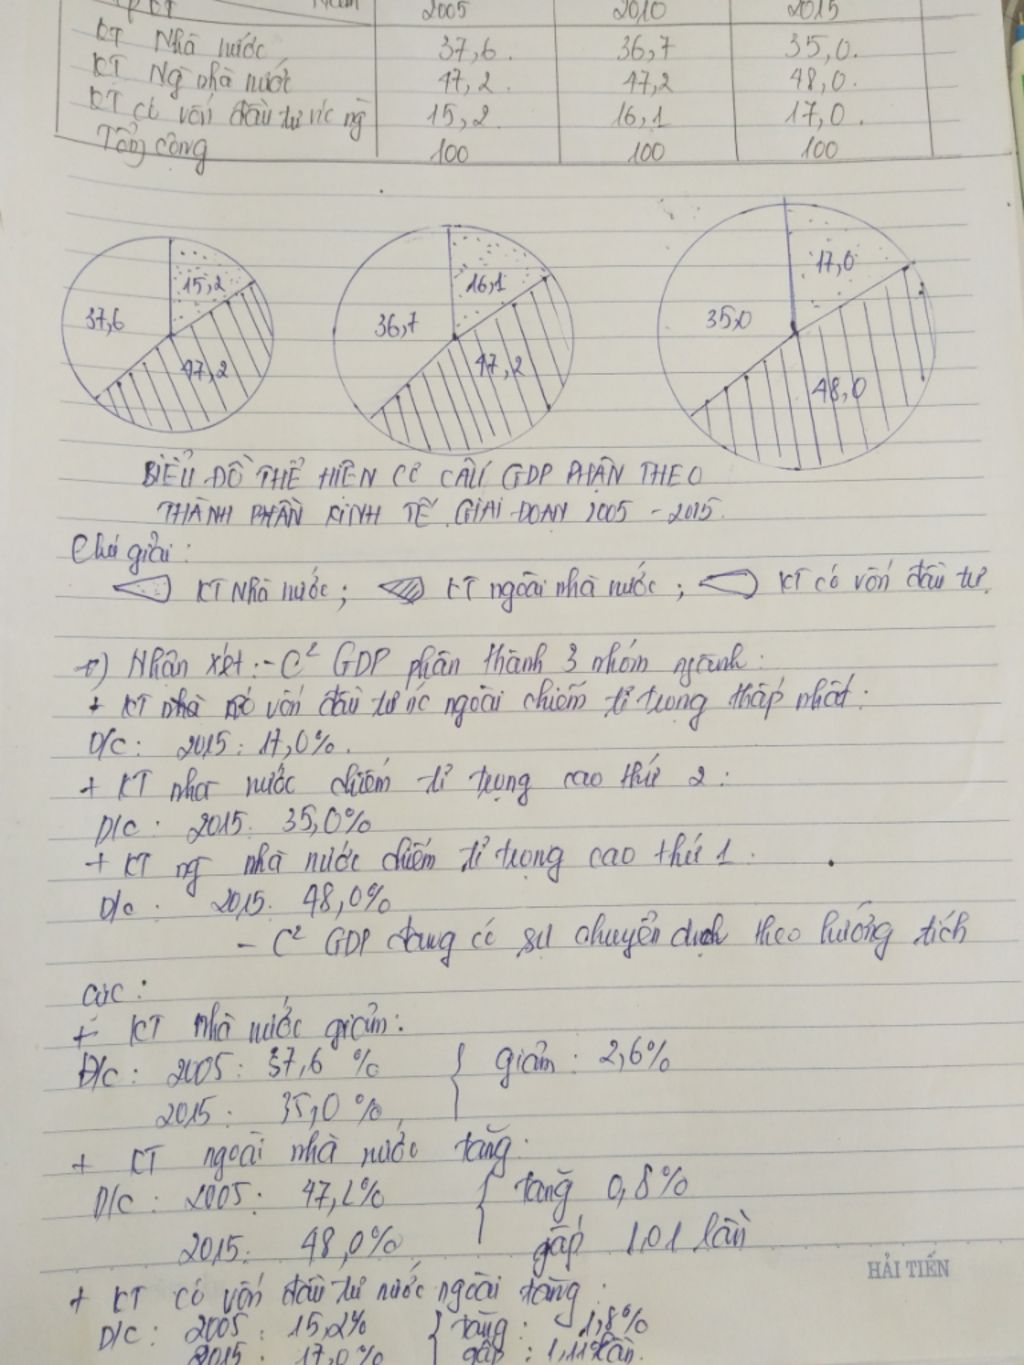 Năm 2005 2010 2015
KT Nhà nước 37,6. 36,7 35,0.
KT Ng nhà nước 47,2. 47,2 48,0.
KT có vốn đầu tư nc ng 15,2 16,1 17,0.
Tổng cộng 100 100 100
15,2 16,1 17,0
37,6 36,7 35,0
47,2 47,2 48,0
BIỂU ĐỒ THỂ HIỆN CƠ CẤU GDP PHÂN THEO
THÀNH PHẦN KINH TẾ GIAI ĐOẠN 2005 - 2015.
Chú giải:
KT Nhà nước; KT ngoài nhà nước; KT có vốn đầu tư.
Nhận xét: - C² GDP phân thành 3 nhóm ngành:
+ KT vốn đầu tư nc ngoài chiếm tỉ trọng thấp nhất:
D/c: 2015: 17,0%.
+ KT nhà nước chiếm tỉ trọng cao thứ 2:
D/c: 2015: 35,0%
+ KT ng nhà nước chiếm tỉ trọng cao thứ 1:
D/c: 2015: 48,0%
- C² GDP đang có sự chuyển dịch theo hướng tích
cực:
+ KT nhà nước giảm:
D/c: 2005: 37,6 % giảm: 2,6%
2015: 35,0 %
+ KT ngoài nhà nước tăng:
D/c: 2005: 47,2% tăng 0,8%
2015: 48,0% gấp 1,01 lần
HẢI TIẾN
+ KT có vốn đầu tư nước ngoài tăng:
D/c: 2005: 15,2% tăng: 1,8%
2015: 17,0% gấp: 1,11 lần.